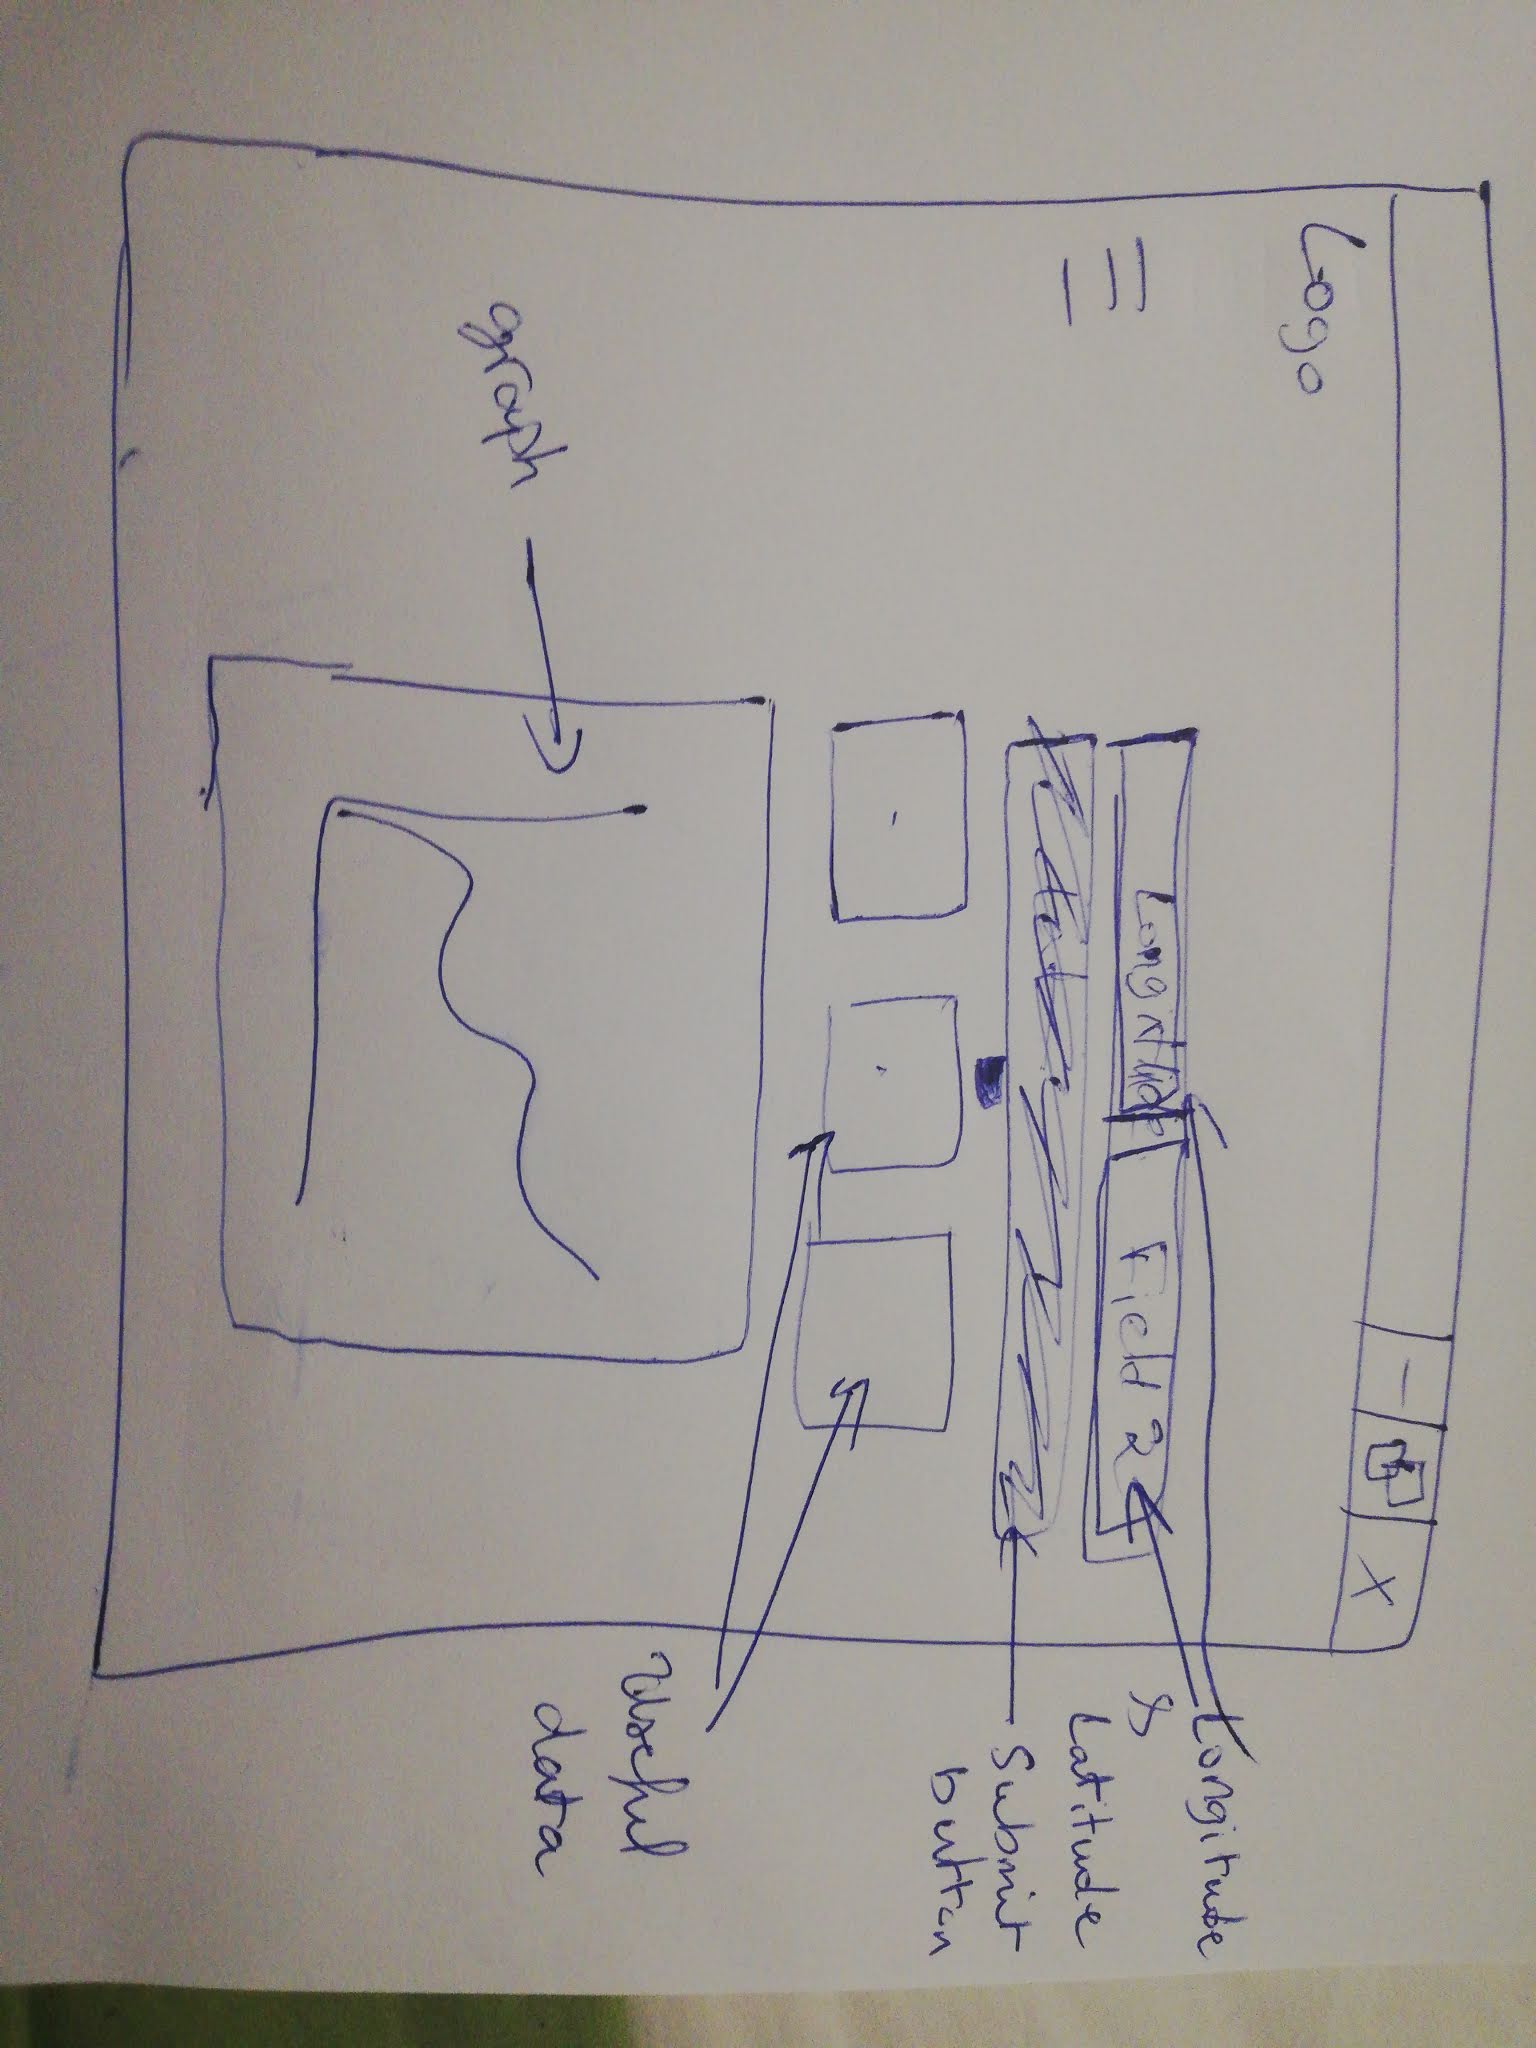 Logo
X
Longitude
Field 2
Longitude
& Latitude
Submit
button
Useful
data
graph